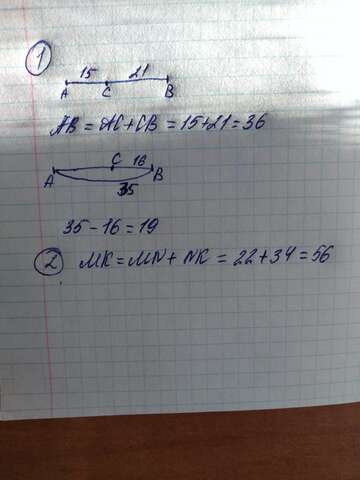 1
15 21
A C B
AB = AC + CB = 15 + 21 = 36
C 16
A B
35
35 - 16 = 19
2 MK = MN + NK = 22 + 34 = 56